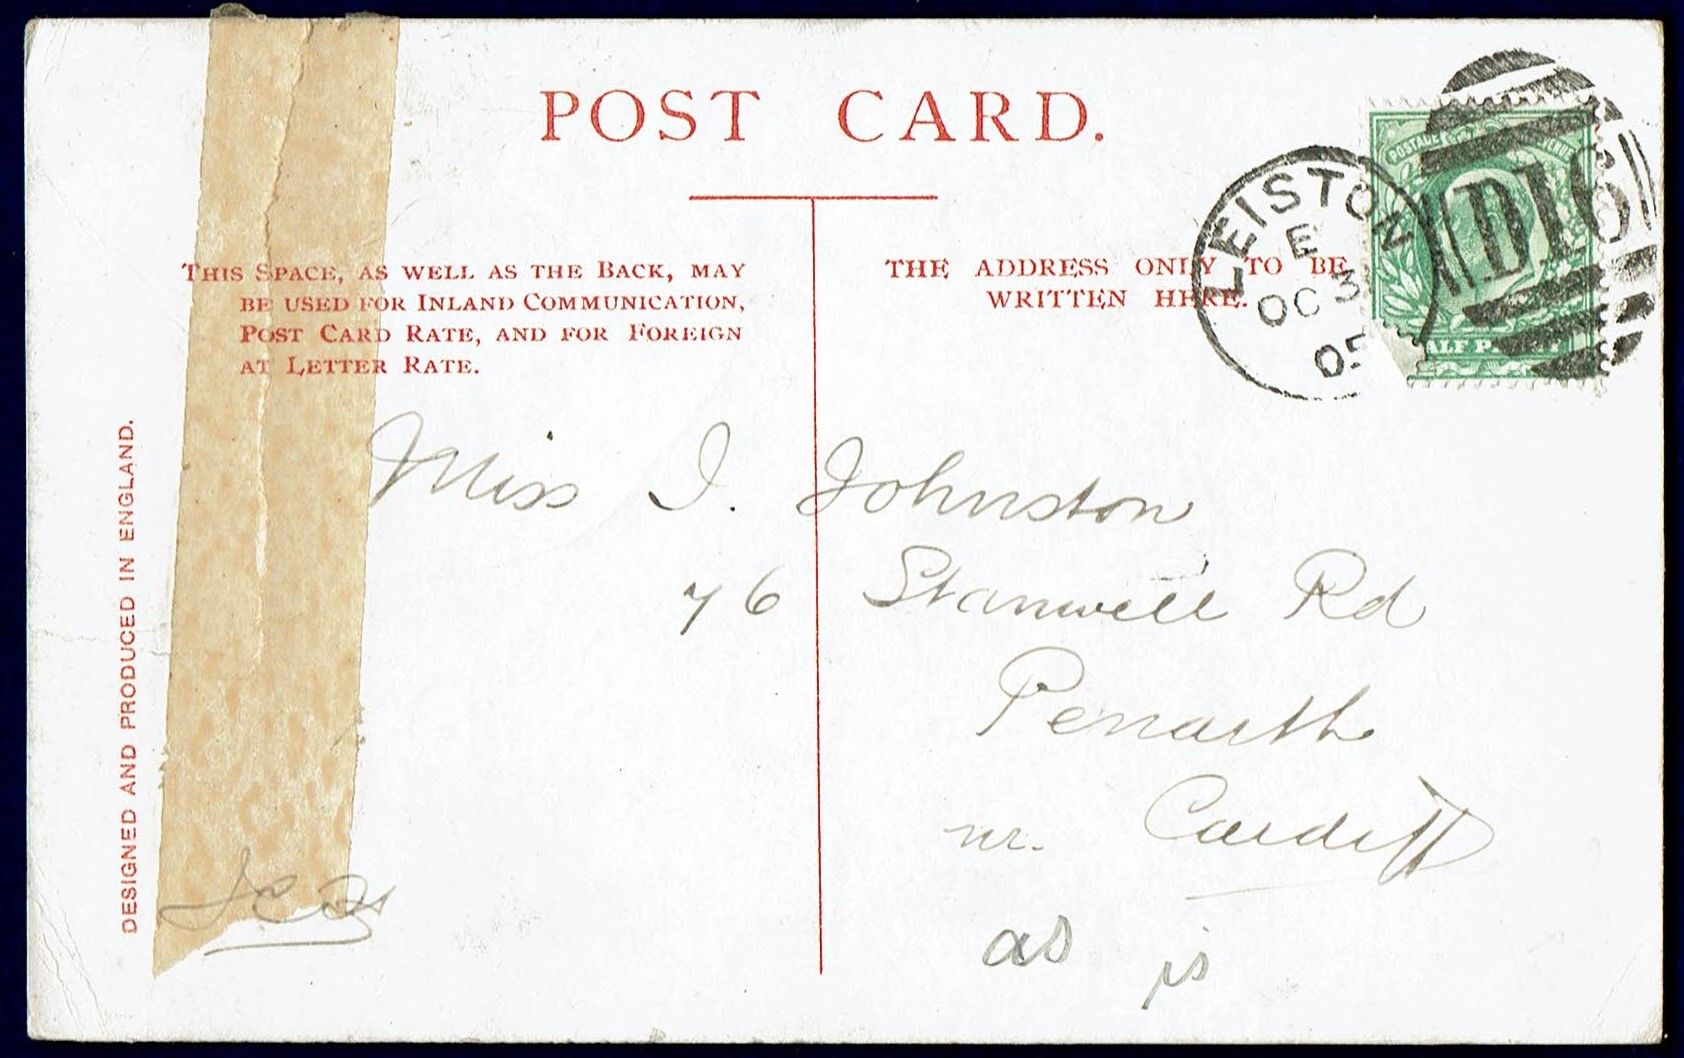 POST CARD.
THIS SPACE, AS WELL AS THE BACK, MAY
BE USED FOR INLAND COMMUNICATION,
POST CARD RATE, AND FOR FOREIGN
AT LETTER RATE.
THE ADDRESS ONLY TO BE
WRITTEN HERE.
LEISTON
E
OC 3
05
D16
POSTAGE REVENUE
HALF PENNY
DESIGNED AND PRODUCED IN ENGLAND.
Miss I. Johnston
76 Stanwell Rd
Penarth
nr. Cardiff
as is